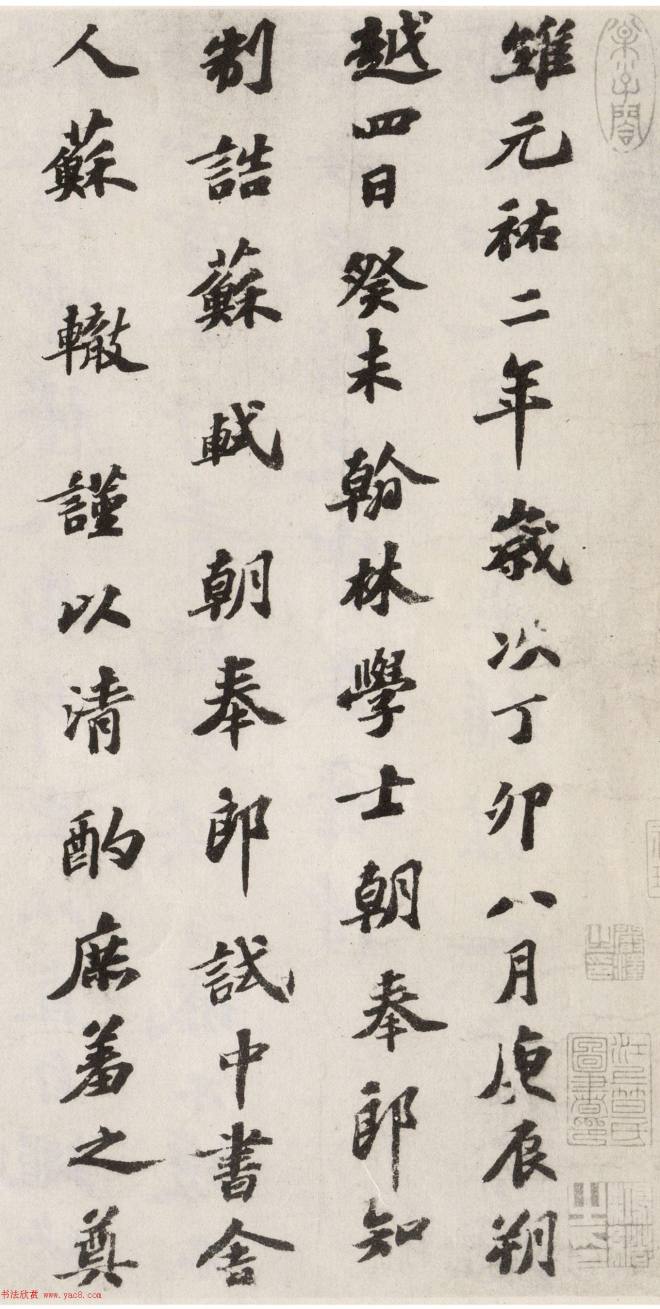 維元祐二年歲次丁卯八月庚辰朔
越四日癸未翰林學士朝奉郎知
制誥蘇軾朝奉郎試中書舍
人蘇轍謹以清酌庶羞之奠
书法欣赏 www.yac8.com